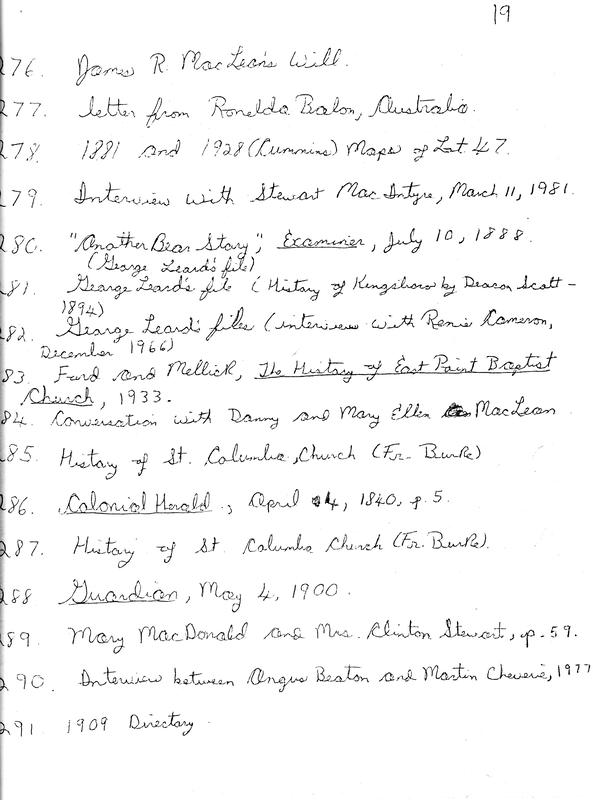 19
276. James R. MacLean's Will.
277. letter from Ronelda Baton, Australia.
278. 1881 and 1928 (Cummins) Maps of Lot 47.
279. Interview with Stewart MacIntyre, March 11, 1981.
280. "Another Bear Story", Examiner, July 10, 1888.
(George Leard's file)
281. George Leard's file (History of Kingsboro by Deacon Scott -
1894)
282. George Leard's files (interview with Renie Cameron,
December 1966)
283. Ford and Mellick, The History of East Point Baptist
Church, 1933.
284. Conversation with Danny and Mary Ellen MacLean
285. History of St. Columba Church (Fr. Burke)
286. Colonial Herald, April 4, 1840, p. 5.
287. History of St Columba Church (Fr. Burke).
288 Guardian, May 4, 1900.
289. Mary MacDonald and Mrs. Clinton Stewart, p. 59.
290. Interview between Angus Beaton and Martin Cheverie, 1977
291. 1909 Directory.